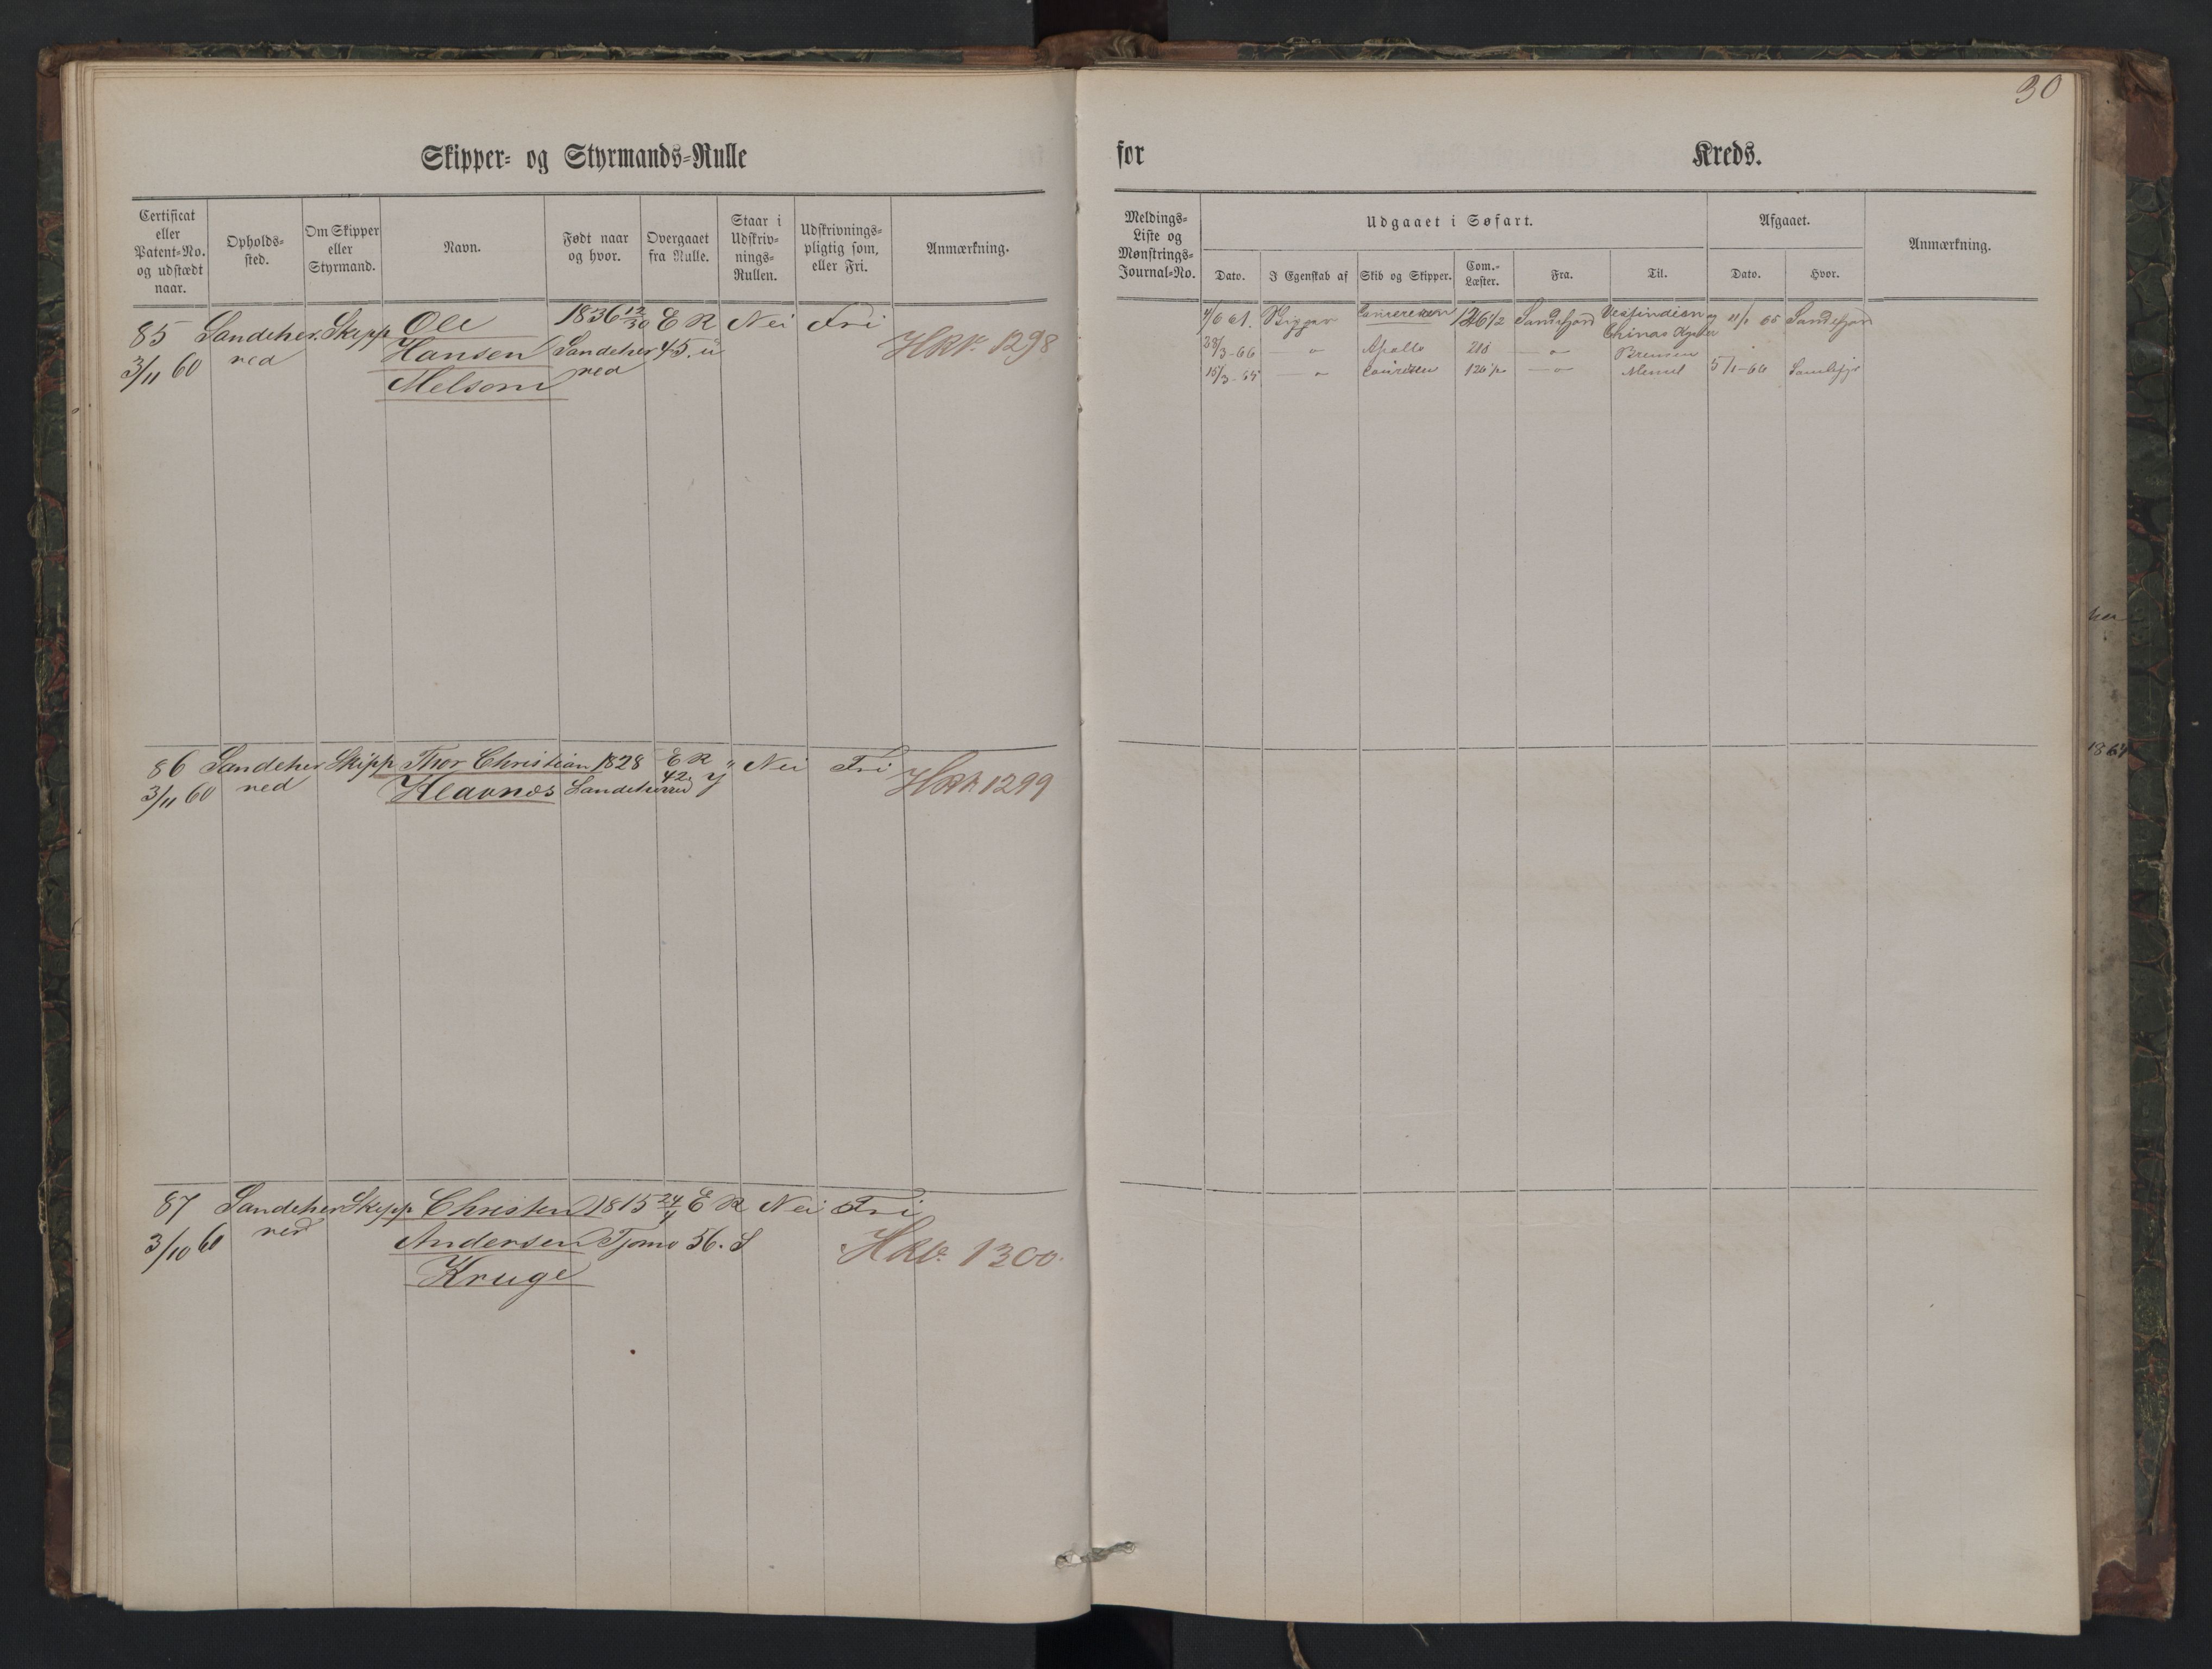 30
Skipper- og Styrmands-Rulle
for Kreds.
Certificat eller Patent-No. og udstædt naar.
Opholds-sted.
Om Skipper eller Styrmand.
Navn.
Født naar og hvor.
Overgaaet fra Rulle.
Staar i Udskriv-nings-Rullen.
Udskrivnings-pligtig som, eller Fri.
Anmærkning.
Meldings-Liste og Mønstrings-Journal-No.
Udgaaet i Søfart.
Dato.
I Egenskab af
Skib og Skipper.
Com.-Læster.
Fra.
Til.
Afgaaet.
Dato.
Hvor.
Anmærkning.
85 Sandeher Skipp Ole 1836 12/30 E R Nei Fri
3/11 60 red Hansen Sandeher 45. ü HRV. 1298
Melsom red
61. 126 1/2 Sandefjord Vestindien og 65 Sandefjord
Chinas
28/3-66 — " — Apollo — " — Bremen
15/3-65 — " — 126 1/2 — " — Memel 5/1-66
86 Sandeher Skipp Thor Christian 1828 E R " Nei Fri
3/11 60 red Klavnæs Sandeherred 42. y HRV. 1299
1864
87 Sandeher Skipp Christen 1815 24/4 E R Nei Fri
3/10 60 red Andersen Tjømø 56. S HRV. 1300.
Kruge